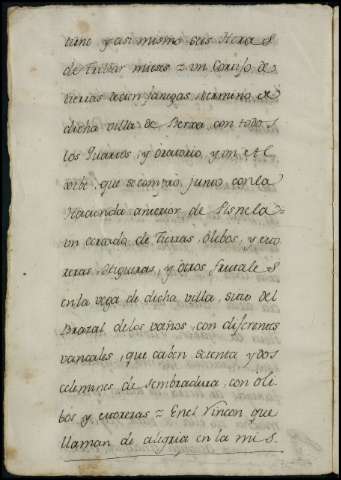 tuno y asi mismo seis Heras
de Trillar mieses = un Cortijo de
tierras de cien fanegas, termino de
dicha villa de Berxa, con todos
los quartos, y oratorio, y un Al
que se compro, junto con la
Hacienda anterior de
un cercado de Tierras Olibos, y
reras, Higueras, y otros frutales
en la vega de dicha villa, sitio del
Brazal de los vaños, con diferentes
vancales, que caben setenta y dos
celemines de sembradura con oli
bos y, = En el Rincon que
llaman de alegria en la mis.